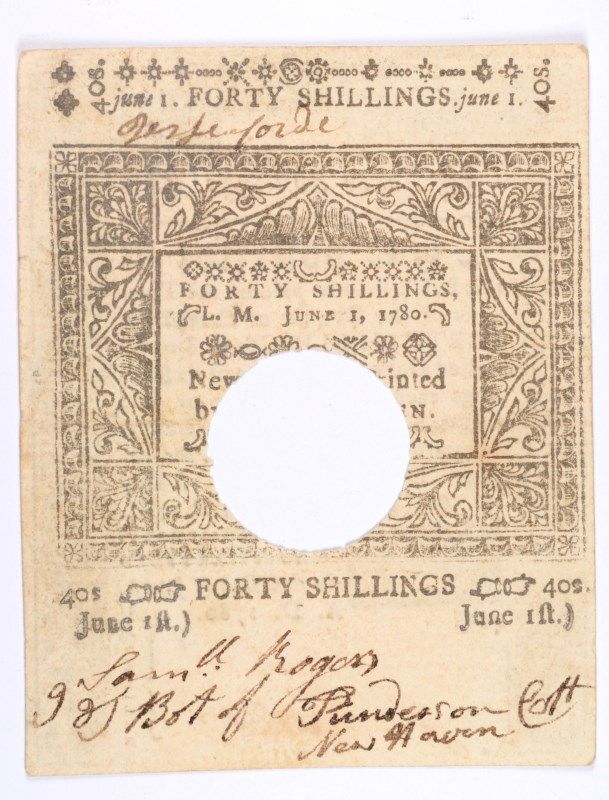 40s. june 1. FORTY SHILLINGS. june 1. 40s.
Jesse Forde
FORTY SHILLINGS,
L. M. JUNE 1, 1780.
New inted
b EN.
40s FORTY SHILLINGS 40s.
June 1st.) June 1st.)
Samll Rogers
Bot of Punderson
New Haven